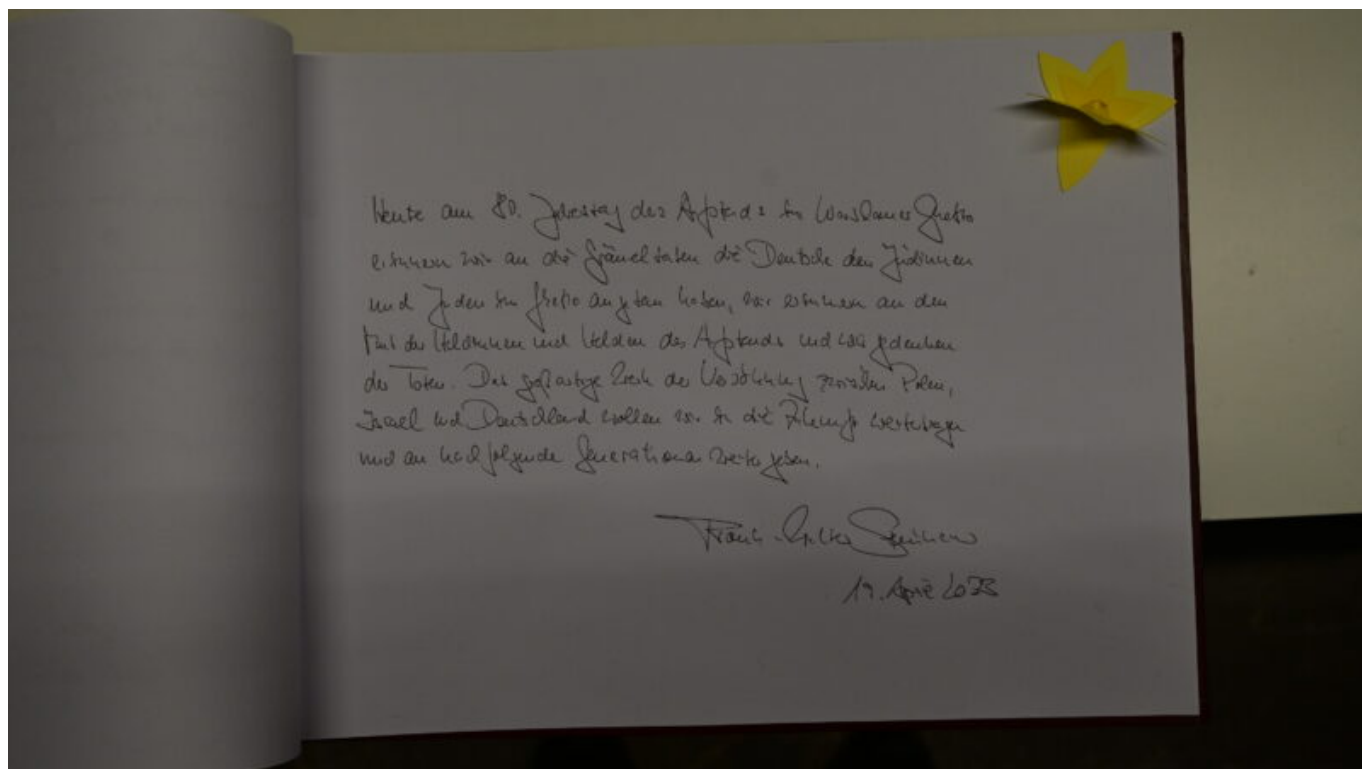 Heute am 80. Jahrestag des Aufstands im Warschauer Ghetto
erinnern wir an die Gräueltaten die Deutsche den Jüdinnen
und Juden im Ghetto angetan haben, wir erinnern an den
Mut der Heldinnen und Helden des Aufstands und wir gedenken
der Toten. Das großartige Werk der Versöhnung zwischen Polen,
Israel und Deutschland wollen wir in die Zukunft weitertragen
und an nachfolgende Generationen weitergeben.
Frank-Walter Steinmeier
19. April 2023